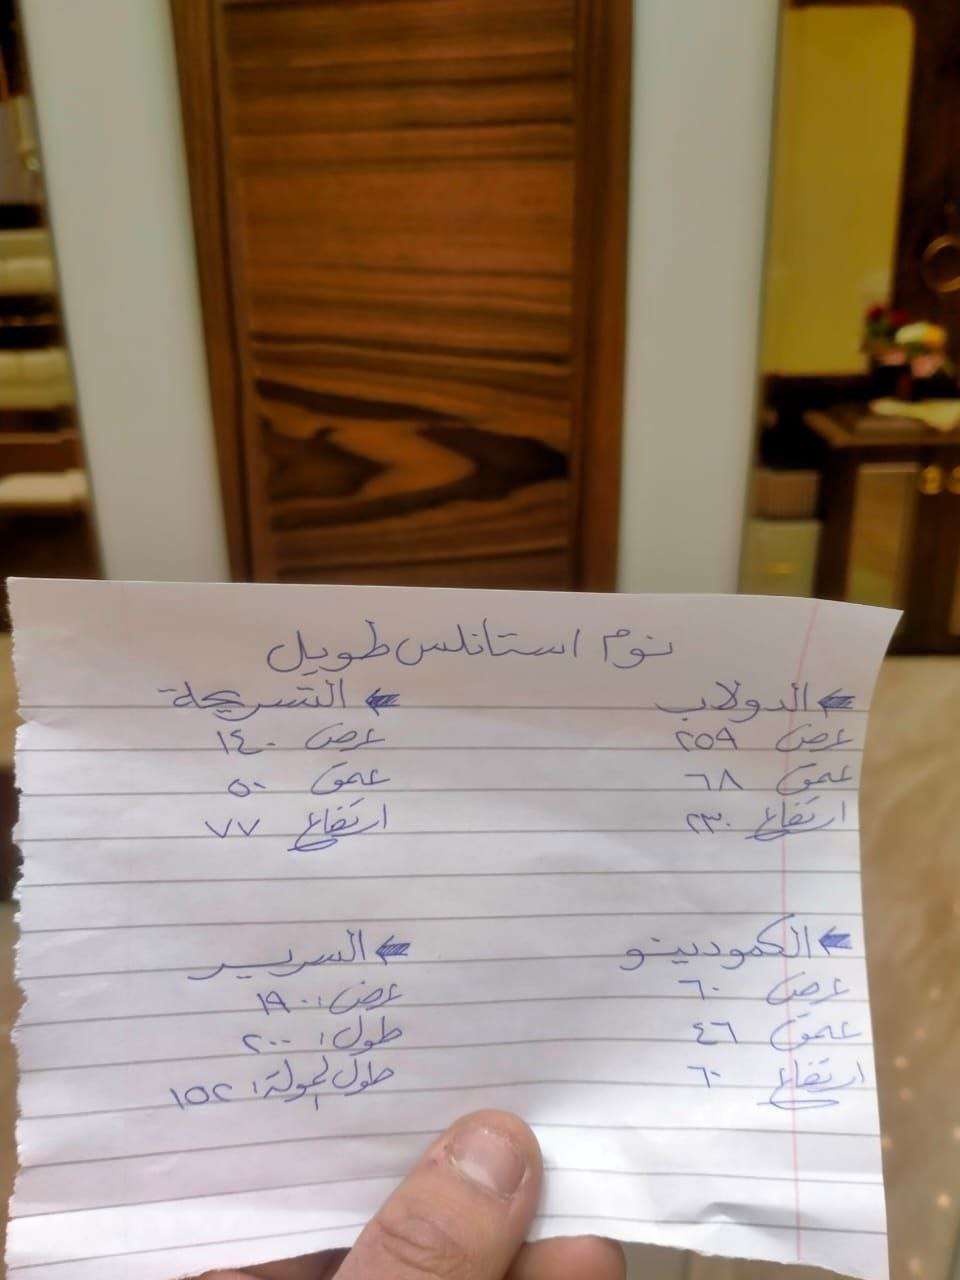 نوم استانلس طويل
الدولاب
عرض ٢٥٩
عمق ٦٨
ارتفاع ٢٣٠
التسريحة
عرض ١٤٠
عمق ٥٠
ارتفاع ٧٧
الكمودينو
عرض ٦٠
عمق ٤٦
ارتفاع ٦٠
السرير
عرض: ١٩٠
طول: ٢٠٠
طول: ١٥٢